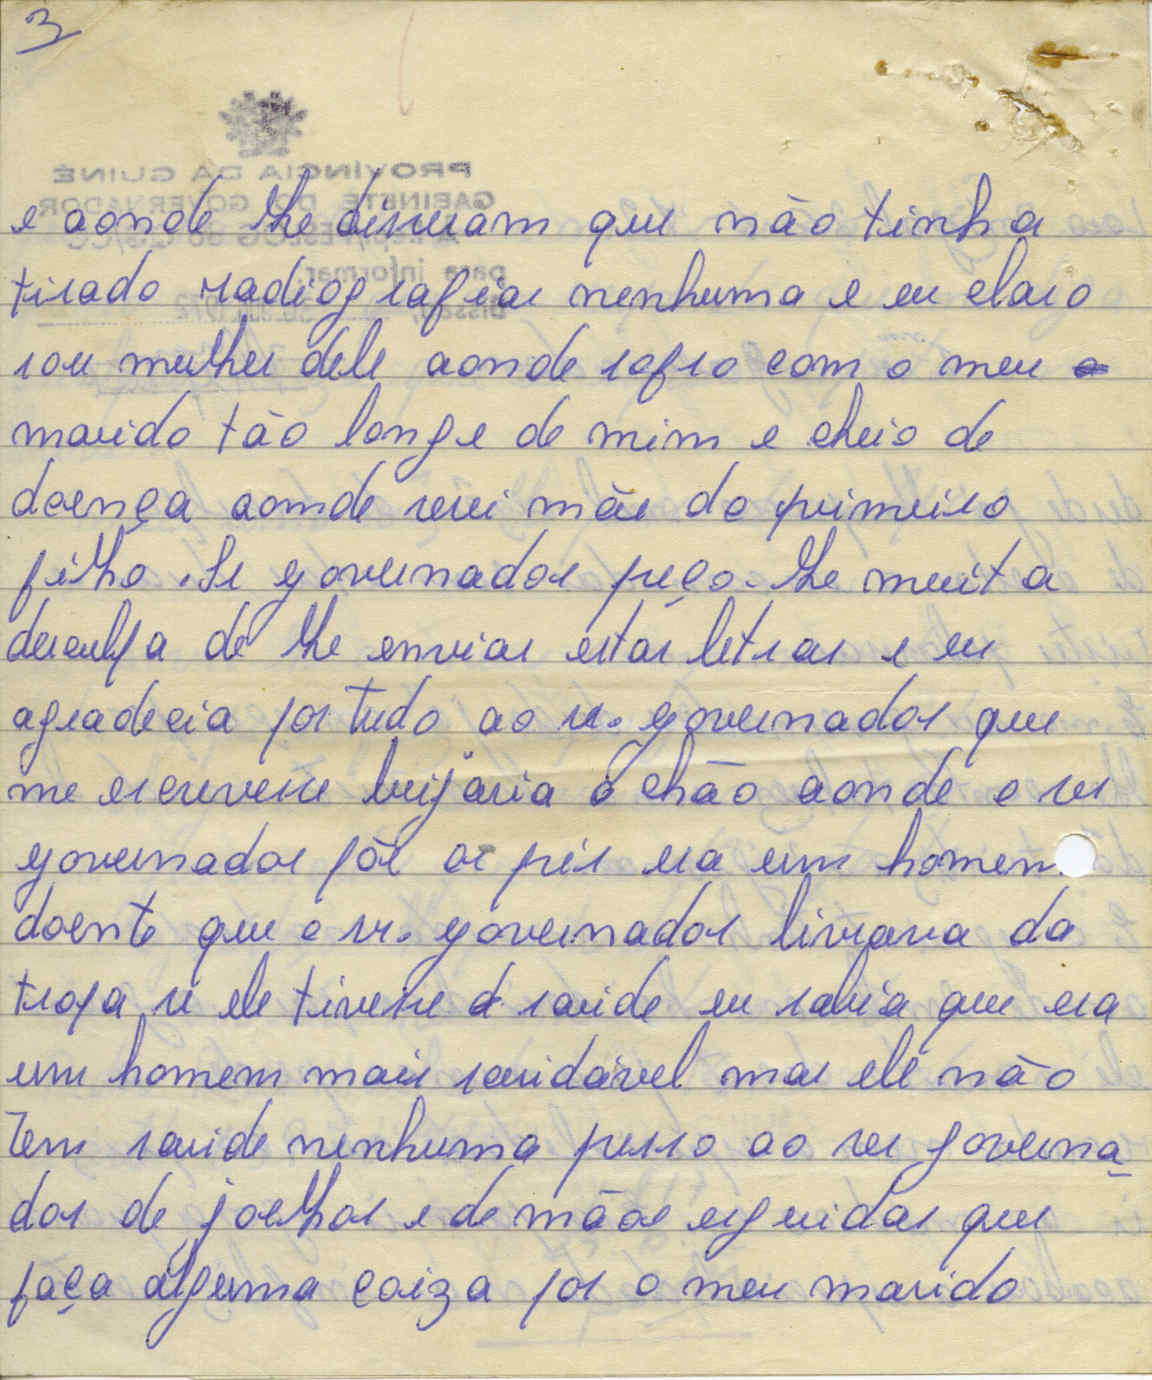 3
PROVÍNCIA DA GUINÉ
GABINETE DO GOVERNADOR
para informar
e aonde lhe diseram que não tinha
tirado radiografias nenhuma e eu claro
sou mulher dele aonde sofro com o meu
marido tão longe de mim e cheio de
doença aonde serei mãe do primeiro
filho. Sr governador peço-lhe muita
desculpa de lhe enviar estas letras e eu
agradecia por tudo ao sr. governador que
me escrevese beijaria o chão aonde o sr
governador põe os pés era um homem
doente que o sr. governador livrava da
tropa si ele tivese a saide eu sabia que era
um homem mais saudável mas ele não
Tem saide nenhuma pesso ao sr governa
dor de joelhos e de mãos erguidas que
faça alguma coiza por o meu marido